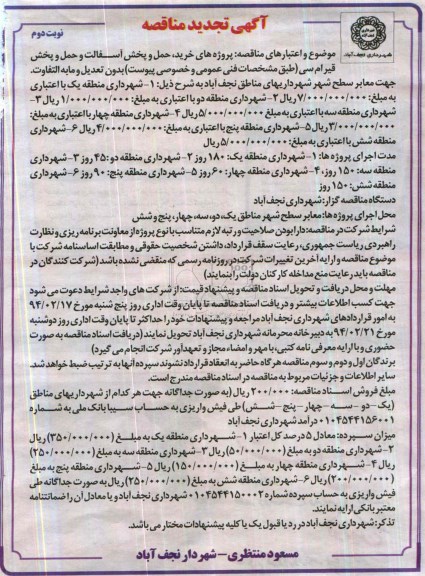 آگهی تجدید مناقصه
نوبت دوم
شهرداری نجف آباد
موضوع و اعتبارهای مناقصه: پروژه های خرید، حمل و پخش آسفالت و حمل و پخش
قیر ام سی (طبق مشخصات فنی عمومی و خصوصی پیوست) بدون تعدیل و مابه التفاوت.
جهت معابر سطح شهر شهرداریهای مناطق نجف آباد به شرح ذیل: ۱- شهرداری منطقه یک با اعتباری
به مبلغ: ۷/۰۰۰/۰۰۰/۰۰۰ ریال ۲- شهرداری منطقه دو با اعتباری به مبلغ: ۱/۰۰۰/۰۰۰/۰۰۰ ریال ۳-
شهرداری منطقه سه با اعتباری به مبلغ: ۵/۰۰۰/۰۰۰/۰۰۰ ریال ۴- شهرداری منطقه چهار با اعتباری به مبلغ:
۳/۰۰۰/۰۰۰/۰۰۰ ریال ۵- شهرداری منطقه پنج با اعتباری به مبلغ: ۴/۰۰۰/۰۰۰/۰۰۰ ریال ۶- شهرداری
منطقه شش با اعتباری به مبلغ: ۵/۰۰۰/۰۰۰/۰۰۰ ریال
مدت اجرای پروژه ها: ۱- شهرداری منطقه یک: ۱۸۰ روز ۲- شهرداری منطقه دو: ۴۵ روز ۳- شهرداری
منطقه سه: ۱۵۰ روز، ۴- شهرداری منطقه چهار: ۶۰ روز ۵- شهرداری منطقه پنج: ۹۰ روز ۶- شهرداری
منطقه شش: ۱۵۰ روز
دستگاه مناقصه گزار: شهرداری نجف آباد
محل اجرای پروژه ها: معابر سطح شهر مناطق یک، دو، سه، چهار، پنج و شش
شرایط شرکت در مناقصه: دارا بودن صلاحیت و رتبه لازم متناسب با نوع پروژه از معاونت برنامه ریزی و نظارت
راهبردی ریاست جمهوری، رعایت سقف قرارداد، داشتن شخصیت حقوقی و مطابقت اساسنامه شرکت با
موضوع مناقصه و ارایه آخرین تغییرات شرکت در روزنامه رسمی که منقضی نشده باشد (شرکت کنندگان در
مناقصه باید رعایت منع مداخله کارکنان دولت را بنمایند)
مهلت و محل دریافت و تحویل اسناد مناقصه و پیشنهاد قیمت: از شرکت های واجد شرایط دعوت می شود
جهت کسب اطلاعات بیشتر و دریافت اسناد مناقصه تا پایان وقت اداری روز پنج شنبه مورخ ۹۴/۰۲/۱۷
به امور قراردادهای شهرداری نجف آباد مراجعه و پیشنهادات خود را حداکثر تا پایان وقت اداری روز دوشنبه
مورخ ۹۴/۰۲/۲۱ به دبیرخانه محرمانه شهرداری نجف آباد تحویل نمایند (دریافت اسناد مناقصه به صورت
حضوری و با ارایه معرفی نامه کتبی، با مهر و امضاء مجاز و تعهدآور شرکت انجام می گیرد)
برندگان اول و دوم و سوم مناقصه هر گاه حاضر به انعقاد قرارداد نشوند سپرده آنها به ترتیب ضبط خواهد شد.
سایر اطلاعات و جزئیات مربوط به مناقصه در اسناد مناقصه مندرج است.
مبلغ فروش اسناد مناقصه: ۲۰۰/۰۰۰ ریال (به صورت جداگانه جهت هر کدام از شهرداریهای مناطق
(یک - دو - سه - چهار - پنج - شش) طی فیش واریزی به حساب سیبا بانک ملی به شماره
۰۱۰۴۵۴۴۱۵۶۰۰۱ درآمد شهرداری نجف آباد
میزان سپرده: معادل ۵ درصد کل اعتبار ۱- شهرداری منطقه یک به مبلغ (۳۵۰/۰۰۰/۰۰۰) ریال
۲- شهرداری منطقه دو به مبلغ (۵۰/۰۰۰/۰۰۰) ریال ۳- شهرداری منطقه سه به مبلغ (۲۵۰/۰۰۰/۰۰۰)
ریال ۴- شهرداری منطقه چهار به مبلغ (۱۵۰/۰۰۰/۰۰۰) ریال ۵- شهرداری منطقه پنج به مبلغ
(۲۰۰/۰۰۰/۰۰۰) ریال ۶- شهرداری منطقه شش به مبلغ (۲۵۰/۰۰۰/۰۰۰) ریال به صورت جداگانه طی
فیش واریزی به حساب سپرده شماره ۰۱۰۴۵۴۴۱۵۰۰۰۲ شهرداری نجف آباد و یا معادل آن را ضمانتنامه
معتبر بانکی ارایه نمایند.
تذکر: شهرداری نجف آباد در رد یا قبول یک یا کلیه پیشنهادات مختار می باشد.
مسعود منتظری - شهردار نجف آباد